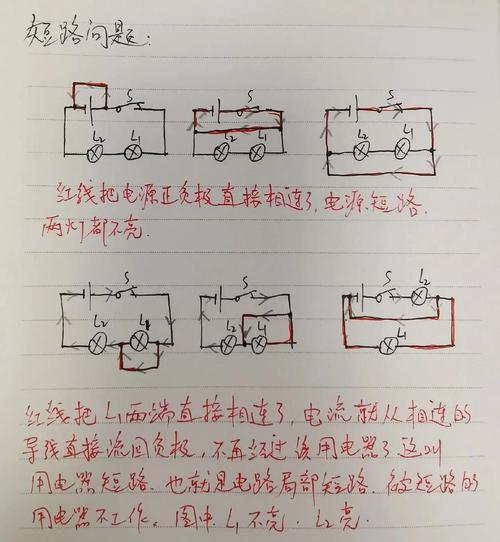 短路问题:
S
S
S
L2 L1
L2 L1
L2 L1
红线把电源正负极直接相连了,电源短路.
两灯都不亮.
S
S
S L2
L2 L1
L2 L1
L1
红线把L1两端直接相连了,电流就从相连的
导线直接流回负极,不再经过该用电器了这叫
用电器短路.也就是电路局部短路.被短路的
用电器不工作。图中L1不亮.L2亮.